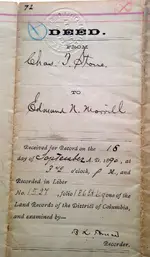 72
DEED.
FROM
Chas. T. Stone
TO
Edmund N. Morrill
Received for Record on the 15
day of September A.D. 1890, at
o'clock, P M., and
Recorded in Liber
No. 1524, folio 186 et seq. one of the
Land Records of the District of Columbia,
and examined by—
Recorder.